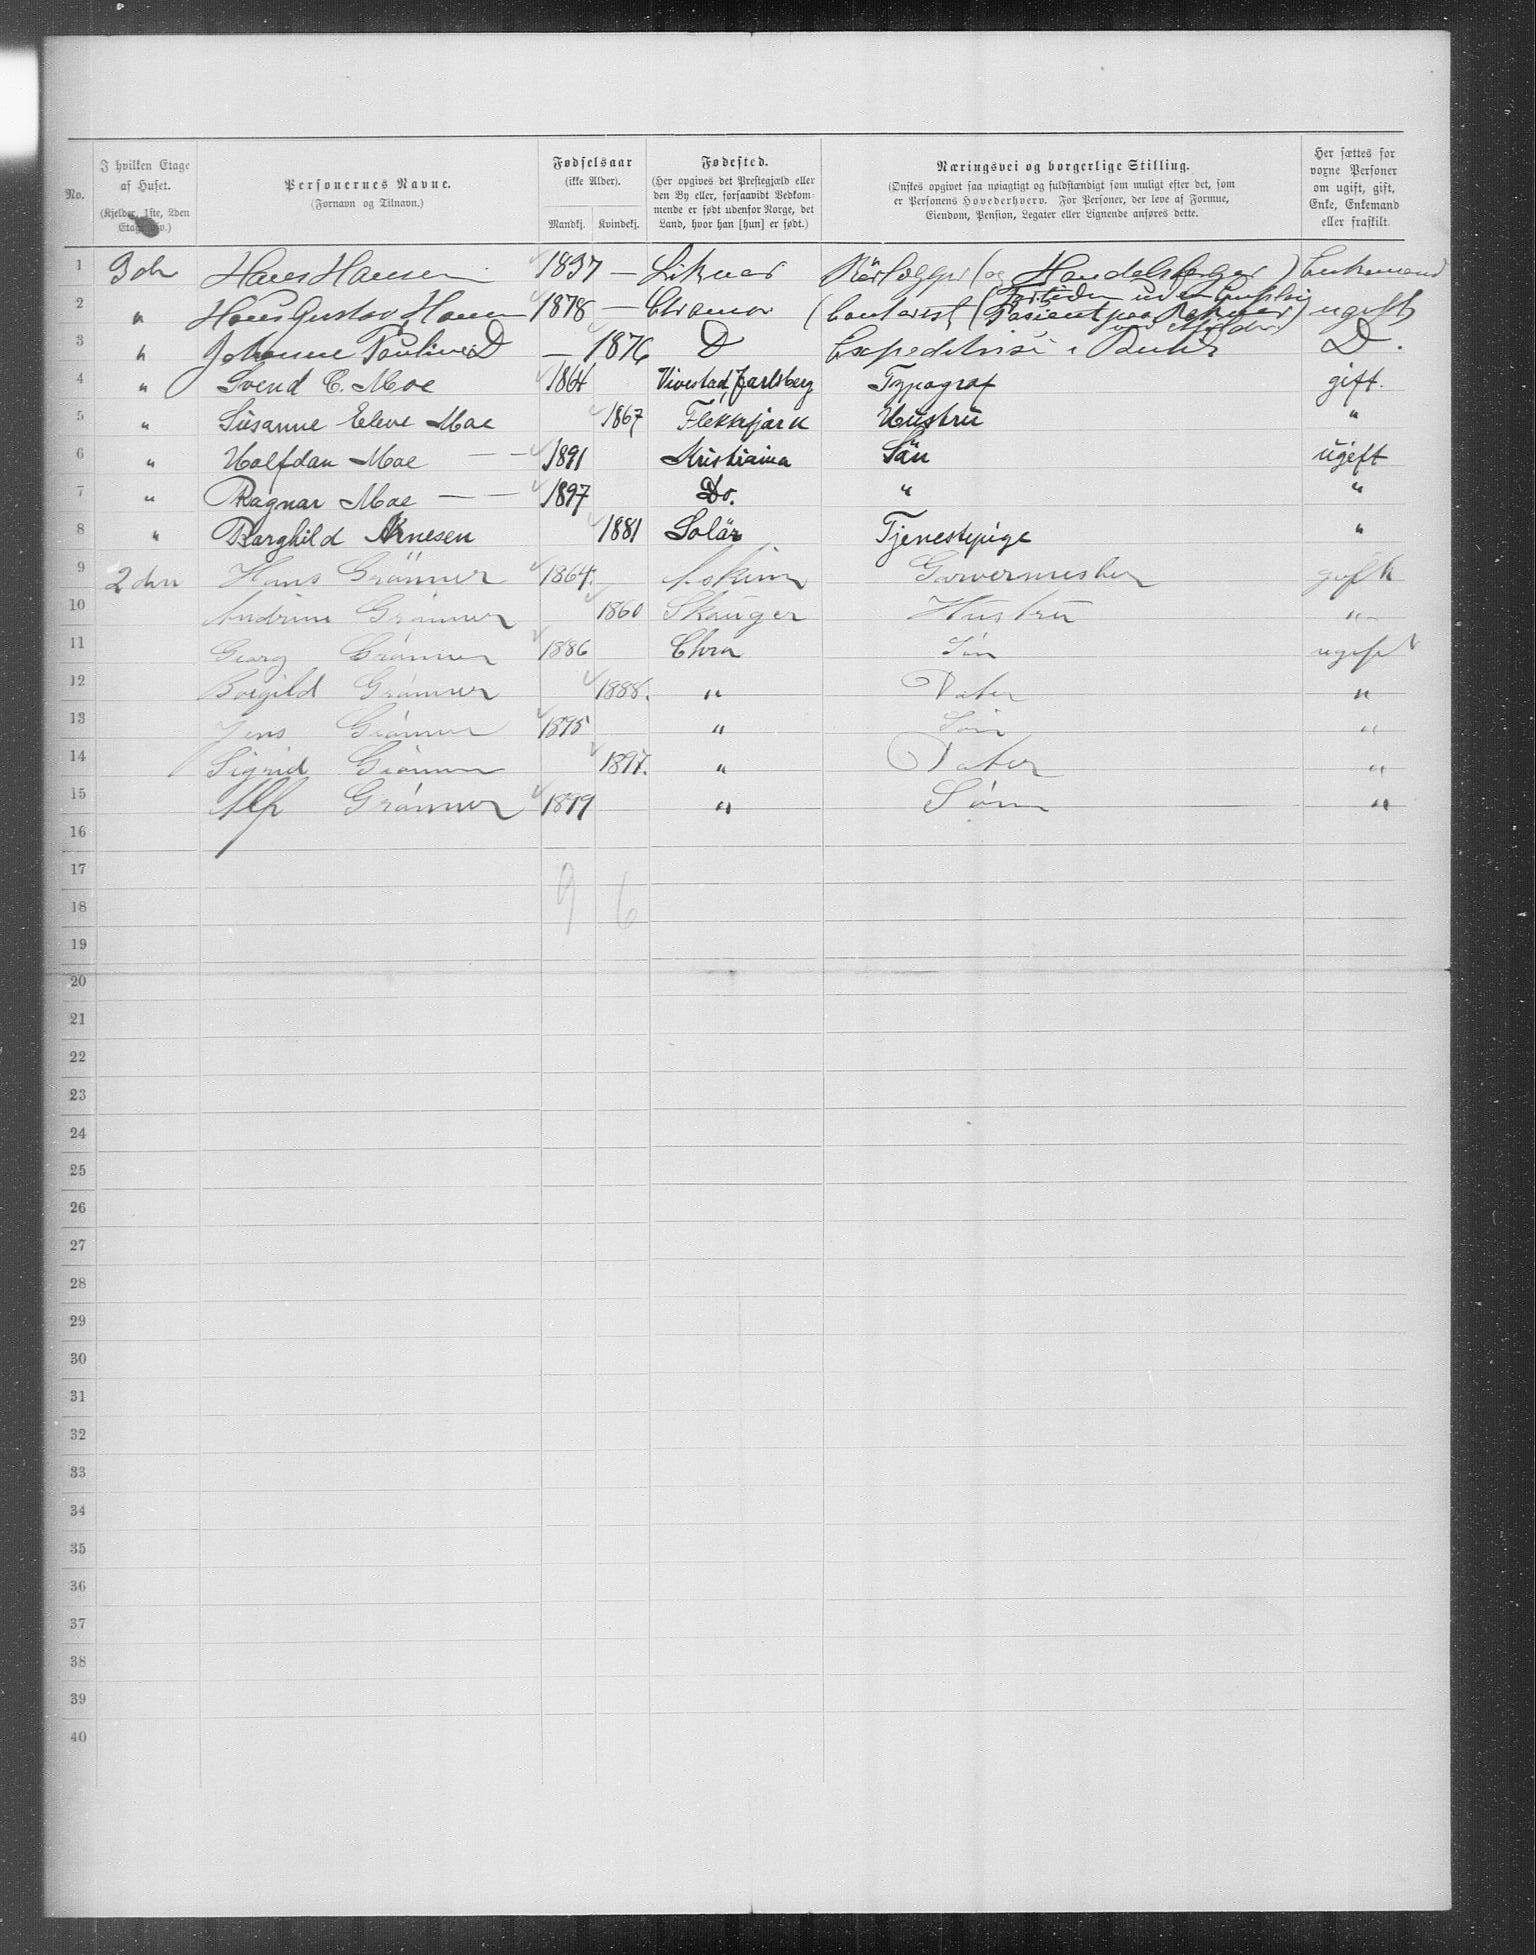 No.
I hvilken Etage af Huset. (Kjelder, 1ste, 2den Etage osv.)
Personernes Navne. (Fornavn og Tilnavn.)
Fødselsaar (ikke Alder). Mandkj. Kvindekj.
Fødested. (Her opgives det Prestegjæld eller den By eller, forsaavidt Vedkommende er født udenfor Norge, det Land, hvor han [hun] er født.)
Næringsvei og borgerlige Stilling. (Ønskes opgivet saa nøiagtigt og fuldstændigt som muligt efter det, som er Personens Hovederhverv. For Personer, der leve af Formue, Eiendom, Pension, Legater eller Lignende anføres dette.
Her sættes for voxne Personer om ugift, gift, Enke, Enkemand eller fraskilt.
1 3die Hans Hansen 1837 — Rörlægger (og Handelsborger) Enkemand
2 " Hans Gustav Hansen 1878 — (Contorist ugift
3 " Johanne Pauline D — 1876 D i Butik D.
4 " Svend C. Moe 1864 Vivestad, Jarlsberg Typograf gift.
5 " Susanne Eleve Moe 1867 Flekkefjord Hustru "
6 " Halfdan Moe — — 1891 Kristiania Sön ugift
7 " Ragnar Moe — — 1897 Do. " "
8 " Borghild Arnesen 1881 Solör Tjenestepige "
9 2den Hans Grönner 1864. Askim Garvermester gift
10 Andrine Grönner 1860 Skauger Hustru "
11 Georg Grönner 1886 Chra Sön ugift
12 Borgild Grönner 1888. " Dater "
13 Jens Grönner 1895 " Sön "
14 Sigrid Grönner 1897. " Dater "
15 Alf Grönner 1899 " Sönn "
16
17
9 6
18
19
20
21
22
23
24
25
26
27
28
29
30
31
32
33
34
35
36
37
38
39
40